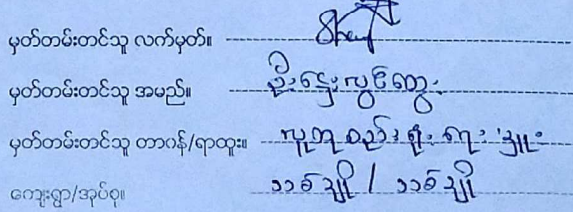 မှတ်တမ်းတင်သူ လက်မှတ်။
မှတ်တမ်းတင်သူ အမည်။ ဦးဌေးလွင်ထွေး
မှတ်တမ်းတင်သူ တာဝန်/ရာထူး။ လူ့ဘုစည်းရုံးရေးမှူး
ကျေးရွာ/အုပ်စု။ သစ်ချို / သစ်ချို